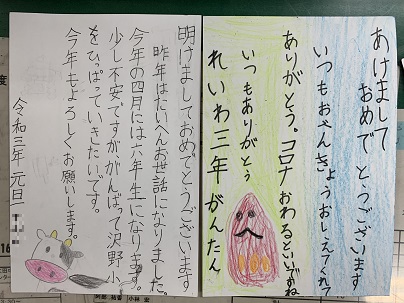 あけまして
おめでとうございます
いつもおべんきょうおしえてくれて
ありがとう。コロナおわるといいですね
いつもありがとう
れいわ三年がんたん
明けましておめでとうございます
昨年はたいへんお世話になりました。
今年の四月には六年生になります。
少し不安ですが、がんばって沢野小
をひっぱっていきたいです。
今年もよろしくお願いします。
令和三年 元旦
度
16